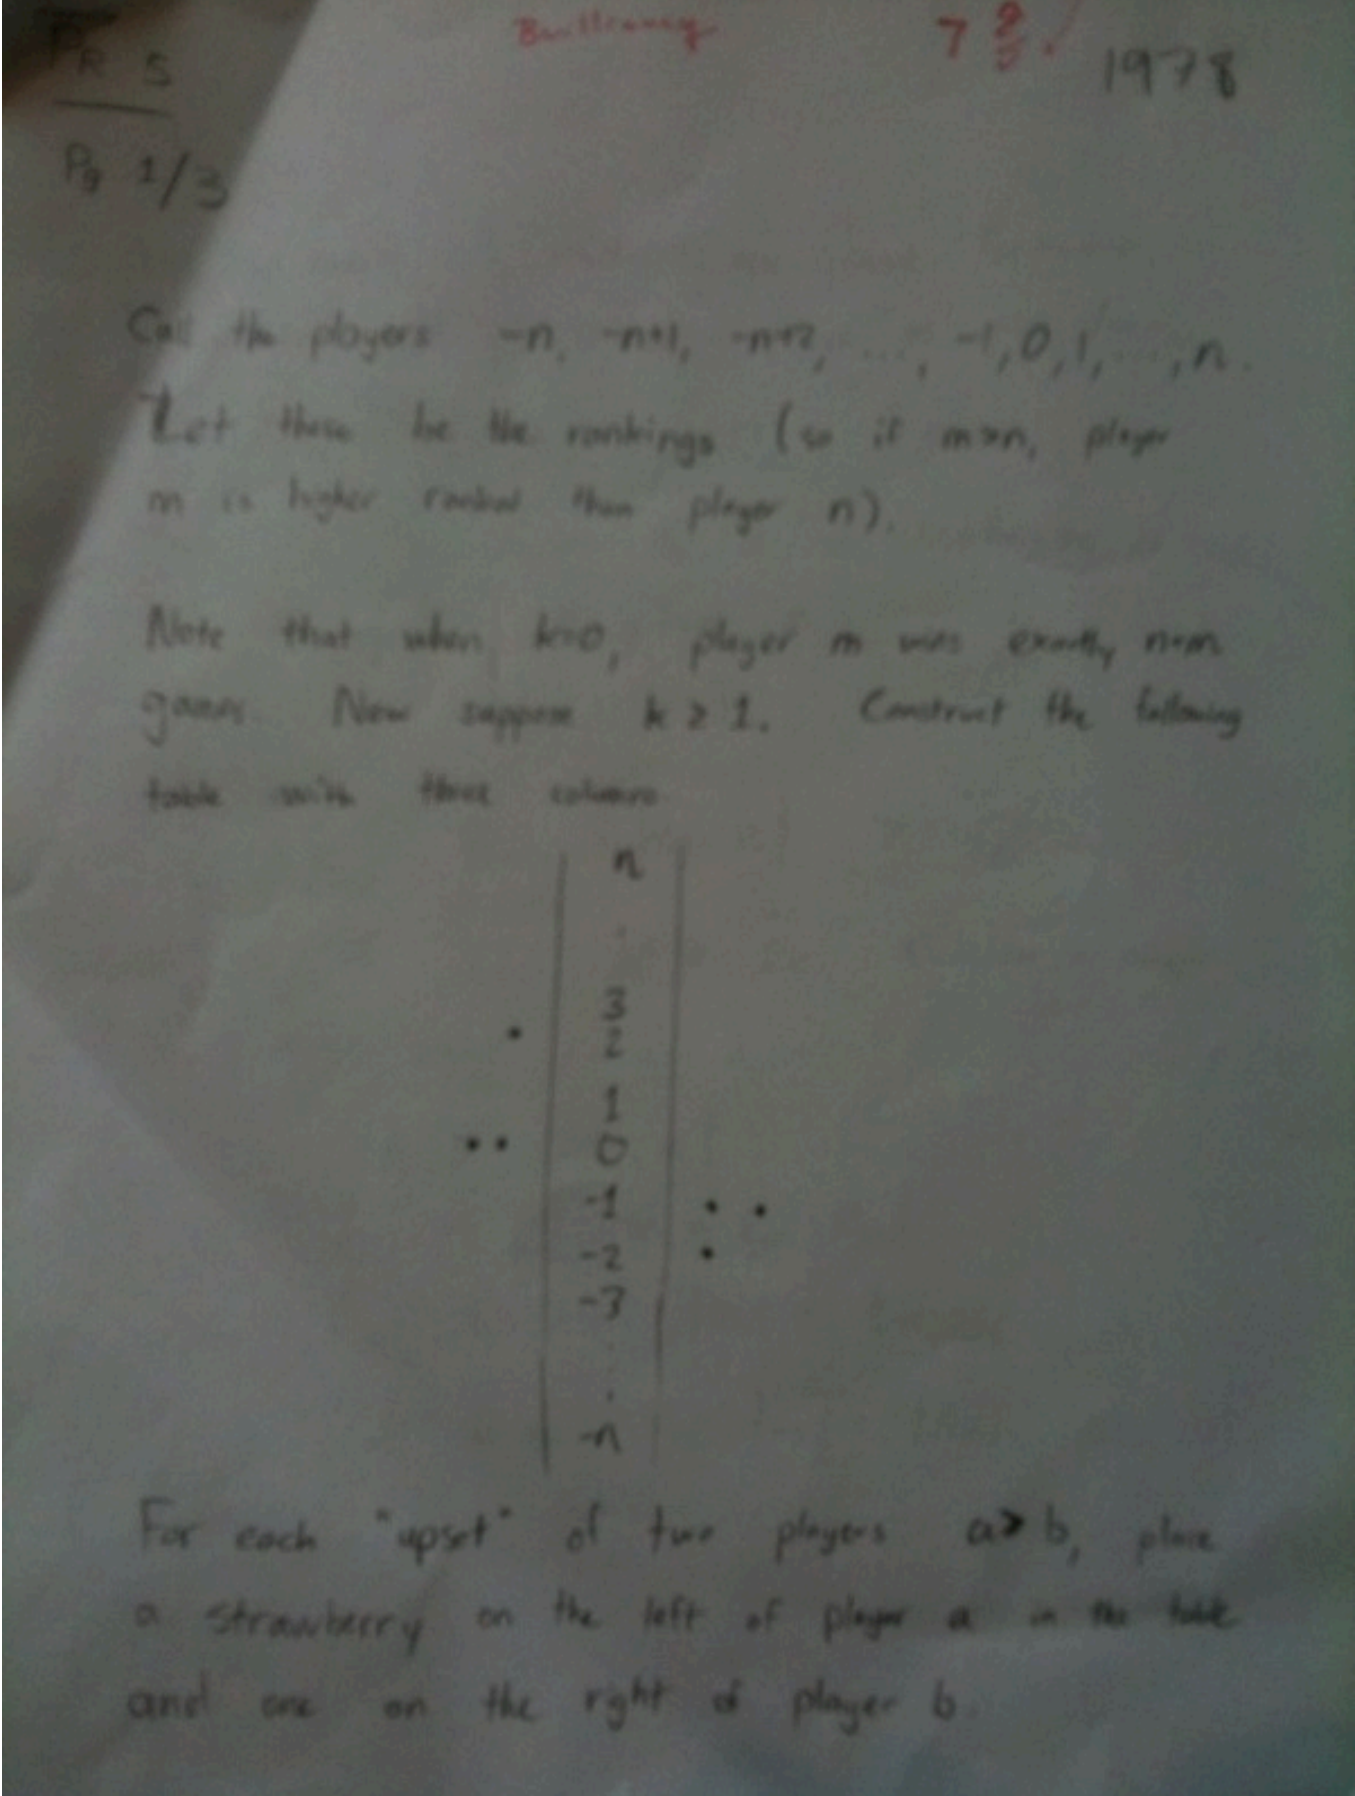 PR 5
Brilliancy
7
1978
Pg 1/3
Call the players -n, -n+1, -n+2, ..., -1, 0, 1, ..., n.
Let these be the rankings (so if m>n, player
m is higher ranked than player n).
Note that when k=0, player m wins exactly n+m
games. Now suppose k ≥ 1. Construct the following
table with three columns
n
3
2
1
0
-1
-2
-3
-n
For each "upset" of two players a > b, place
a strawberry on the left of player a in the table
and one on the right of player b.